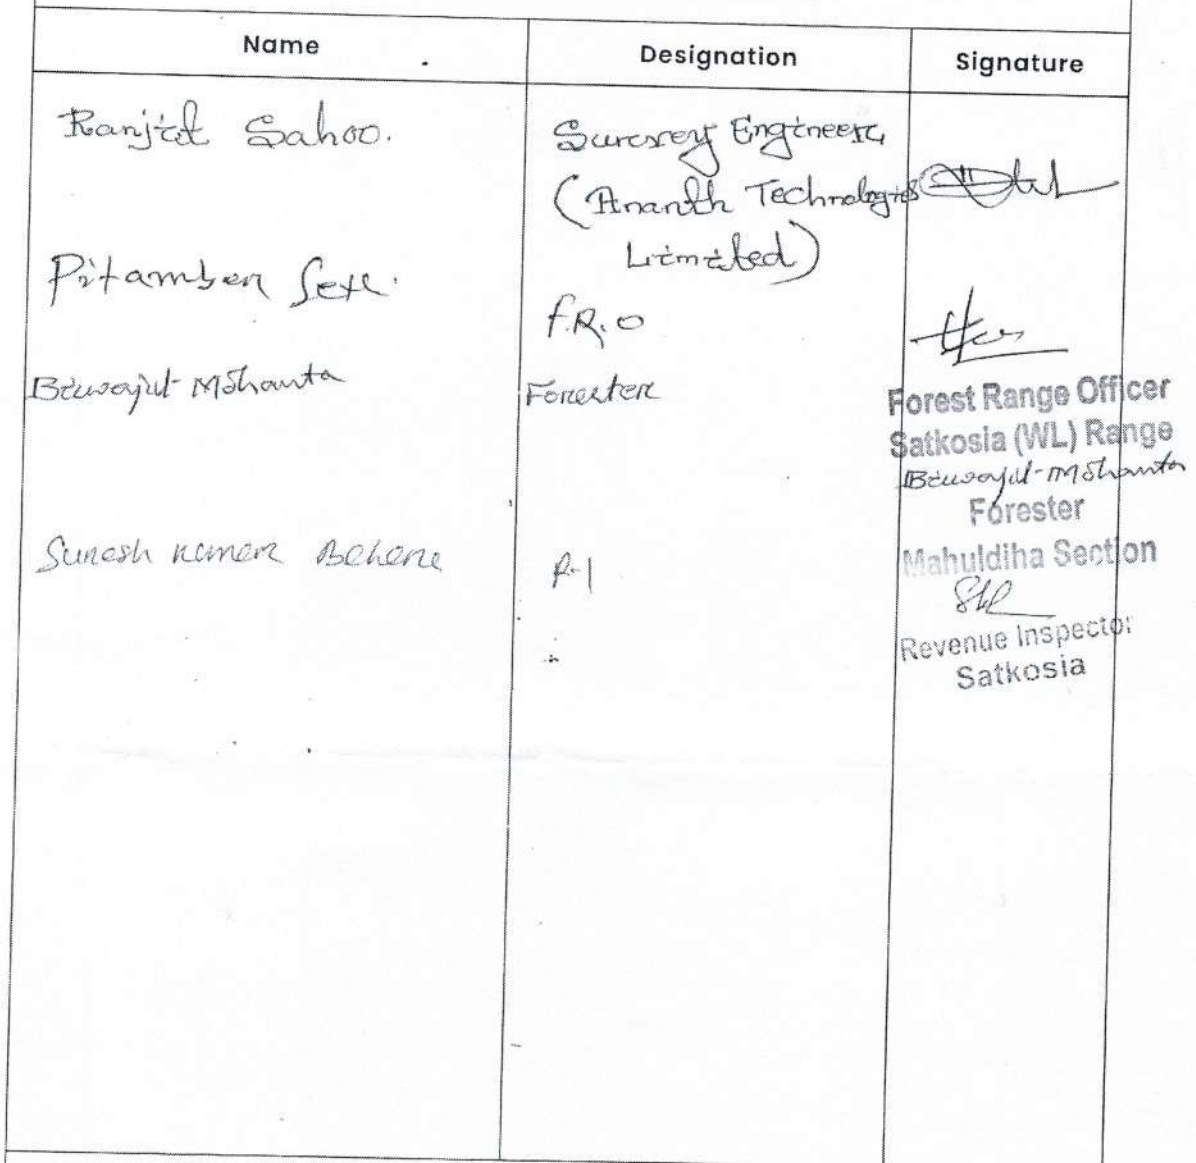 Name Designation Signature
Ranjit Sahoo. Survey Engineer
(Ananth Technologies
Limited)
Pitamber
F.R.O
Forest Range Officer
Satkosia (WL) Range
Mohanta Forester
Mohanta
Forester
Mahuldiha Section
Suresh Kumar Behera R-I
Revenue Inspector
Satkosia